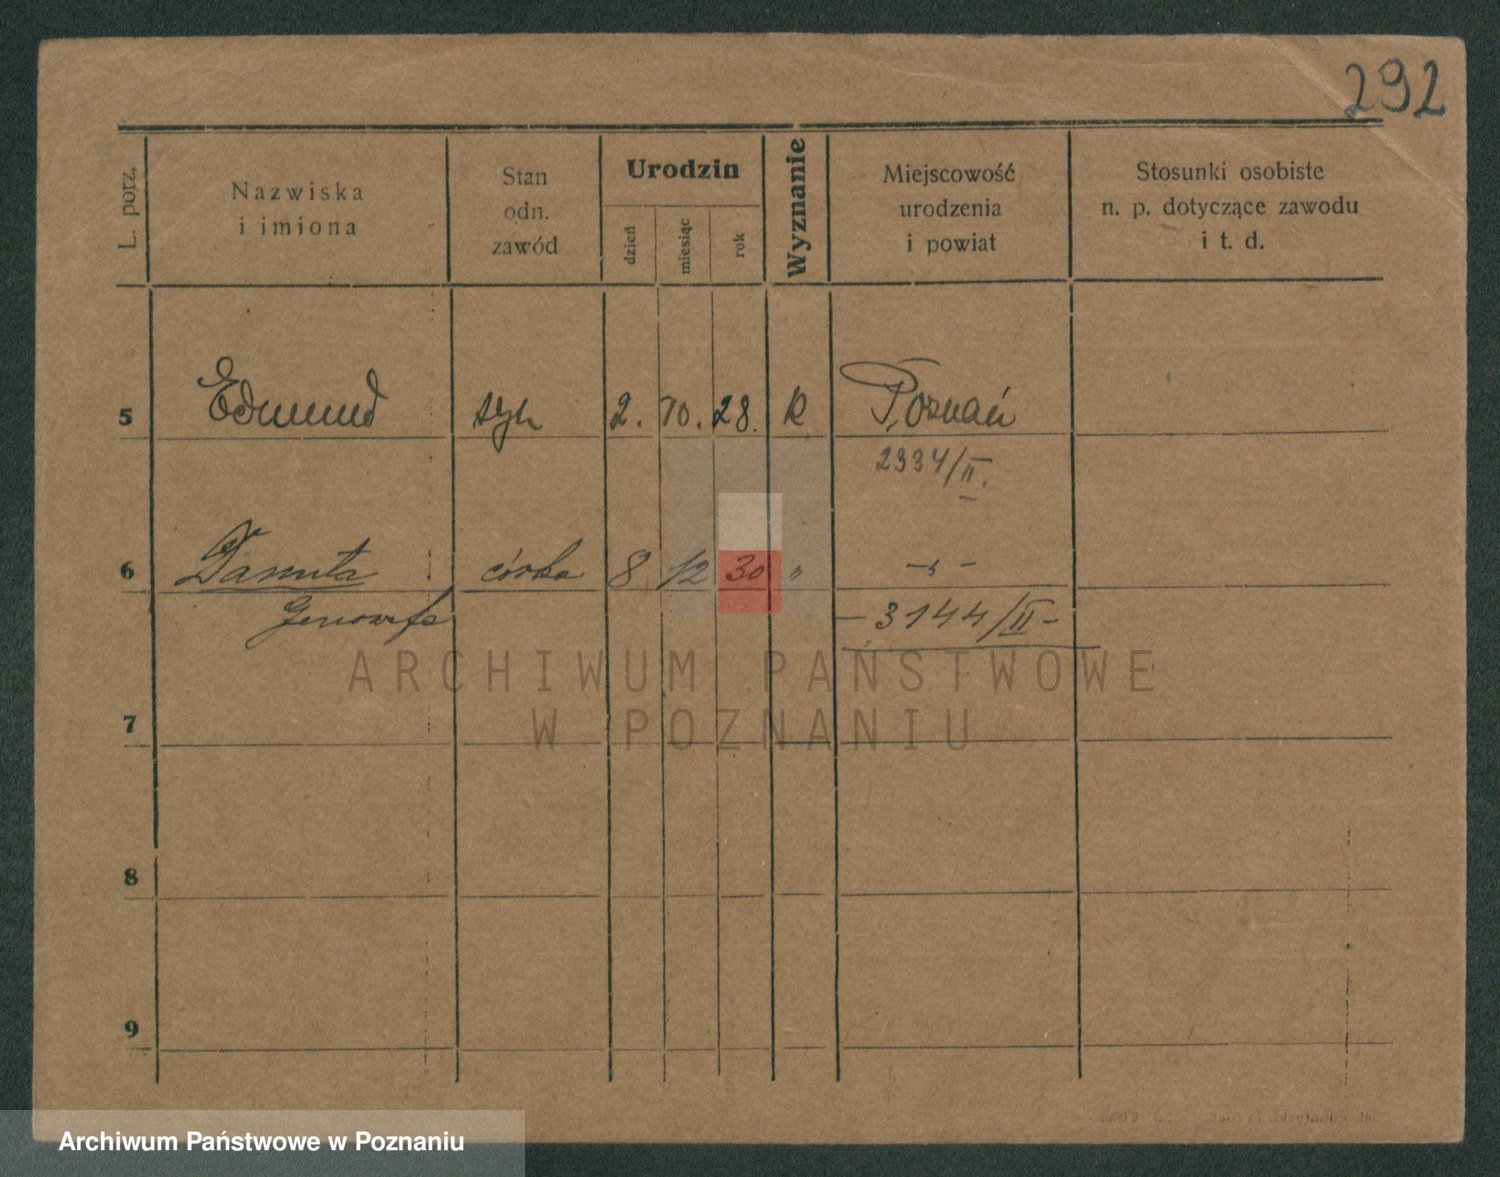 292
L. porz. Nazwiska i imiona Stan odn. zawód Urodzin dzień miesiąc rok Wyznanie Miejscowość urodzenia i powiat Stosunki osobiste n. p. dotyczące zawodu i t. d.
5 Edmund syn 2. 10. 28. k Poznań
2334/II.
6 Danuta córka 8 12 30 " -"-
Genowefa -3144/II-
ARCHIWUM PAŃSTWOWE
W POZNANIU
7
8
9
Archiwum Państwowe w Poznaniu